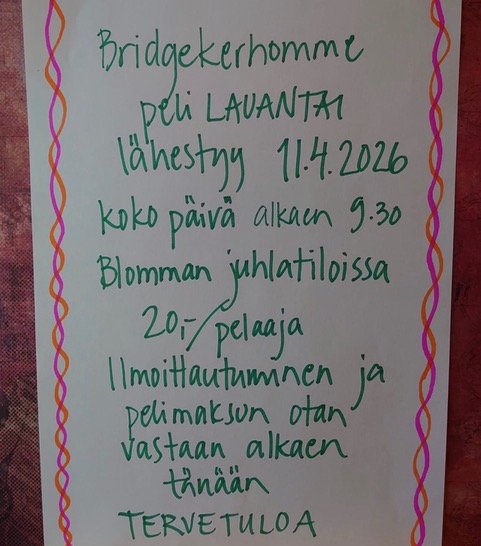 Bridgekerhomme
peli LAUANTAI
lähestyy 11.4.2026
koko päivä alkaen 9.30
Blomman juhlatiloissa
20,-/pelaaja
Ilmoittautuminen ja
pelimaksun otan
vastaan alkaen
tänään
TERVETULOA